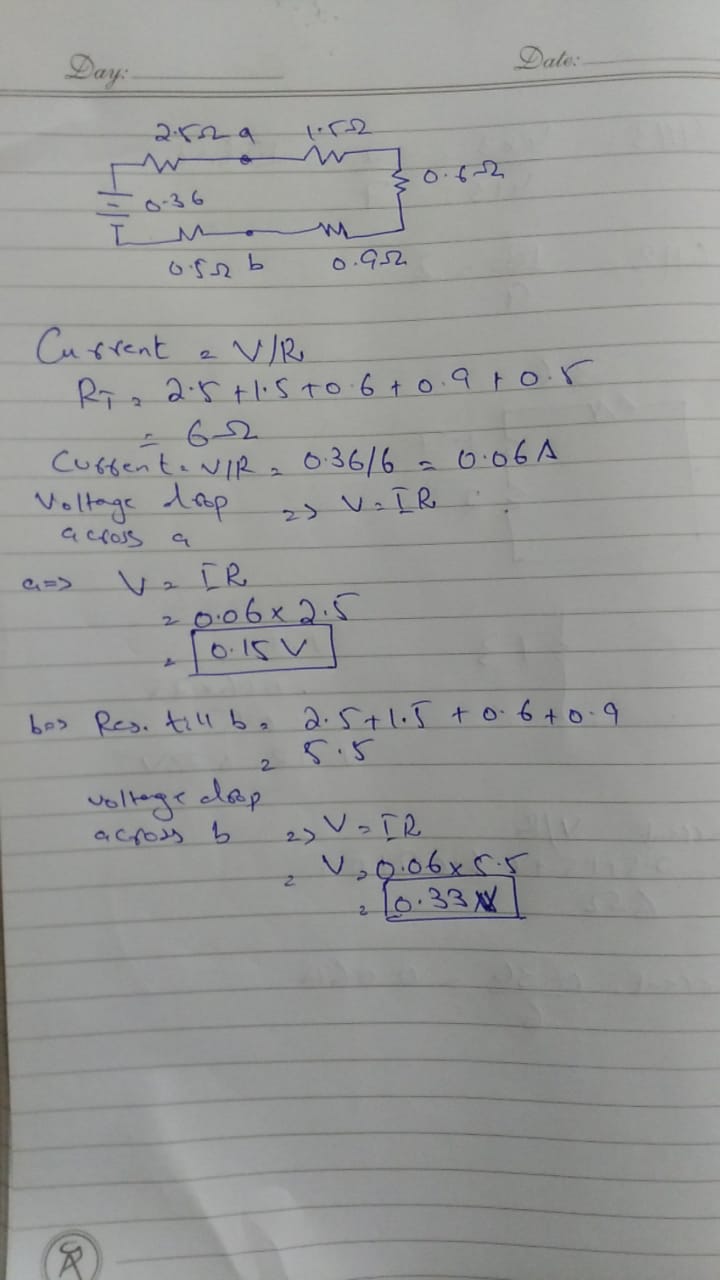 Day:
Date:
2.5Ω a 1.5Ω
0.6Ω
0.36
0.5Ω b 0.9Ω
Current = V/R
RT = 2.5 + 1.5 + 0.6 + 0.9 + 0.5
= 6Ω
Current = V/R = 0.36/6 = 0.06A
Voltage drop => V = IR
across a
a=> V = IR
= 0.06 x 2.5
= 0.15 V
b=> Res. till b = 2.5 + 1.5 + 0.6 + 0.9
= 5.5
voltage drop
across b => V = IR
= V = 0.06 x 5.5
= 0.33 V